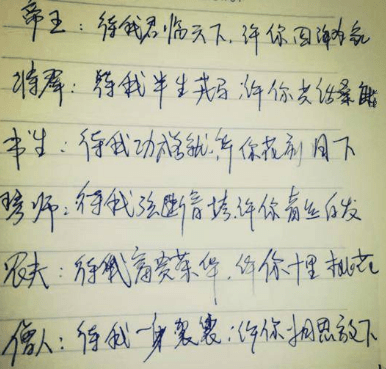 帝王：待我君临天下，许你四海为家
将军：待我半生戎马，许你共话桑麻
书生：待我功成名就，许你花前月下
琴师：待我弦断音垮，许你青丝白发
农夫：待我富贵荣华，许你十里桃花
僧人：待我一身袈裟，许你相思放下